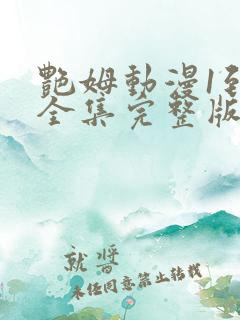 艷姆動漫1
全集完整版
就將
未经同意禁止转载